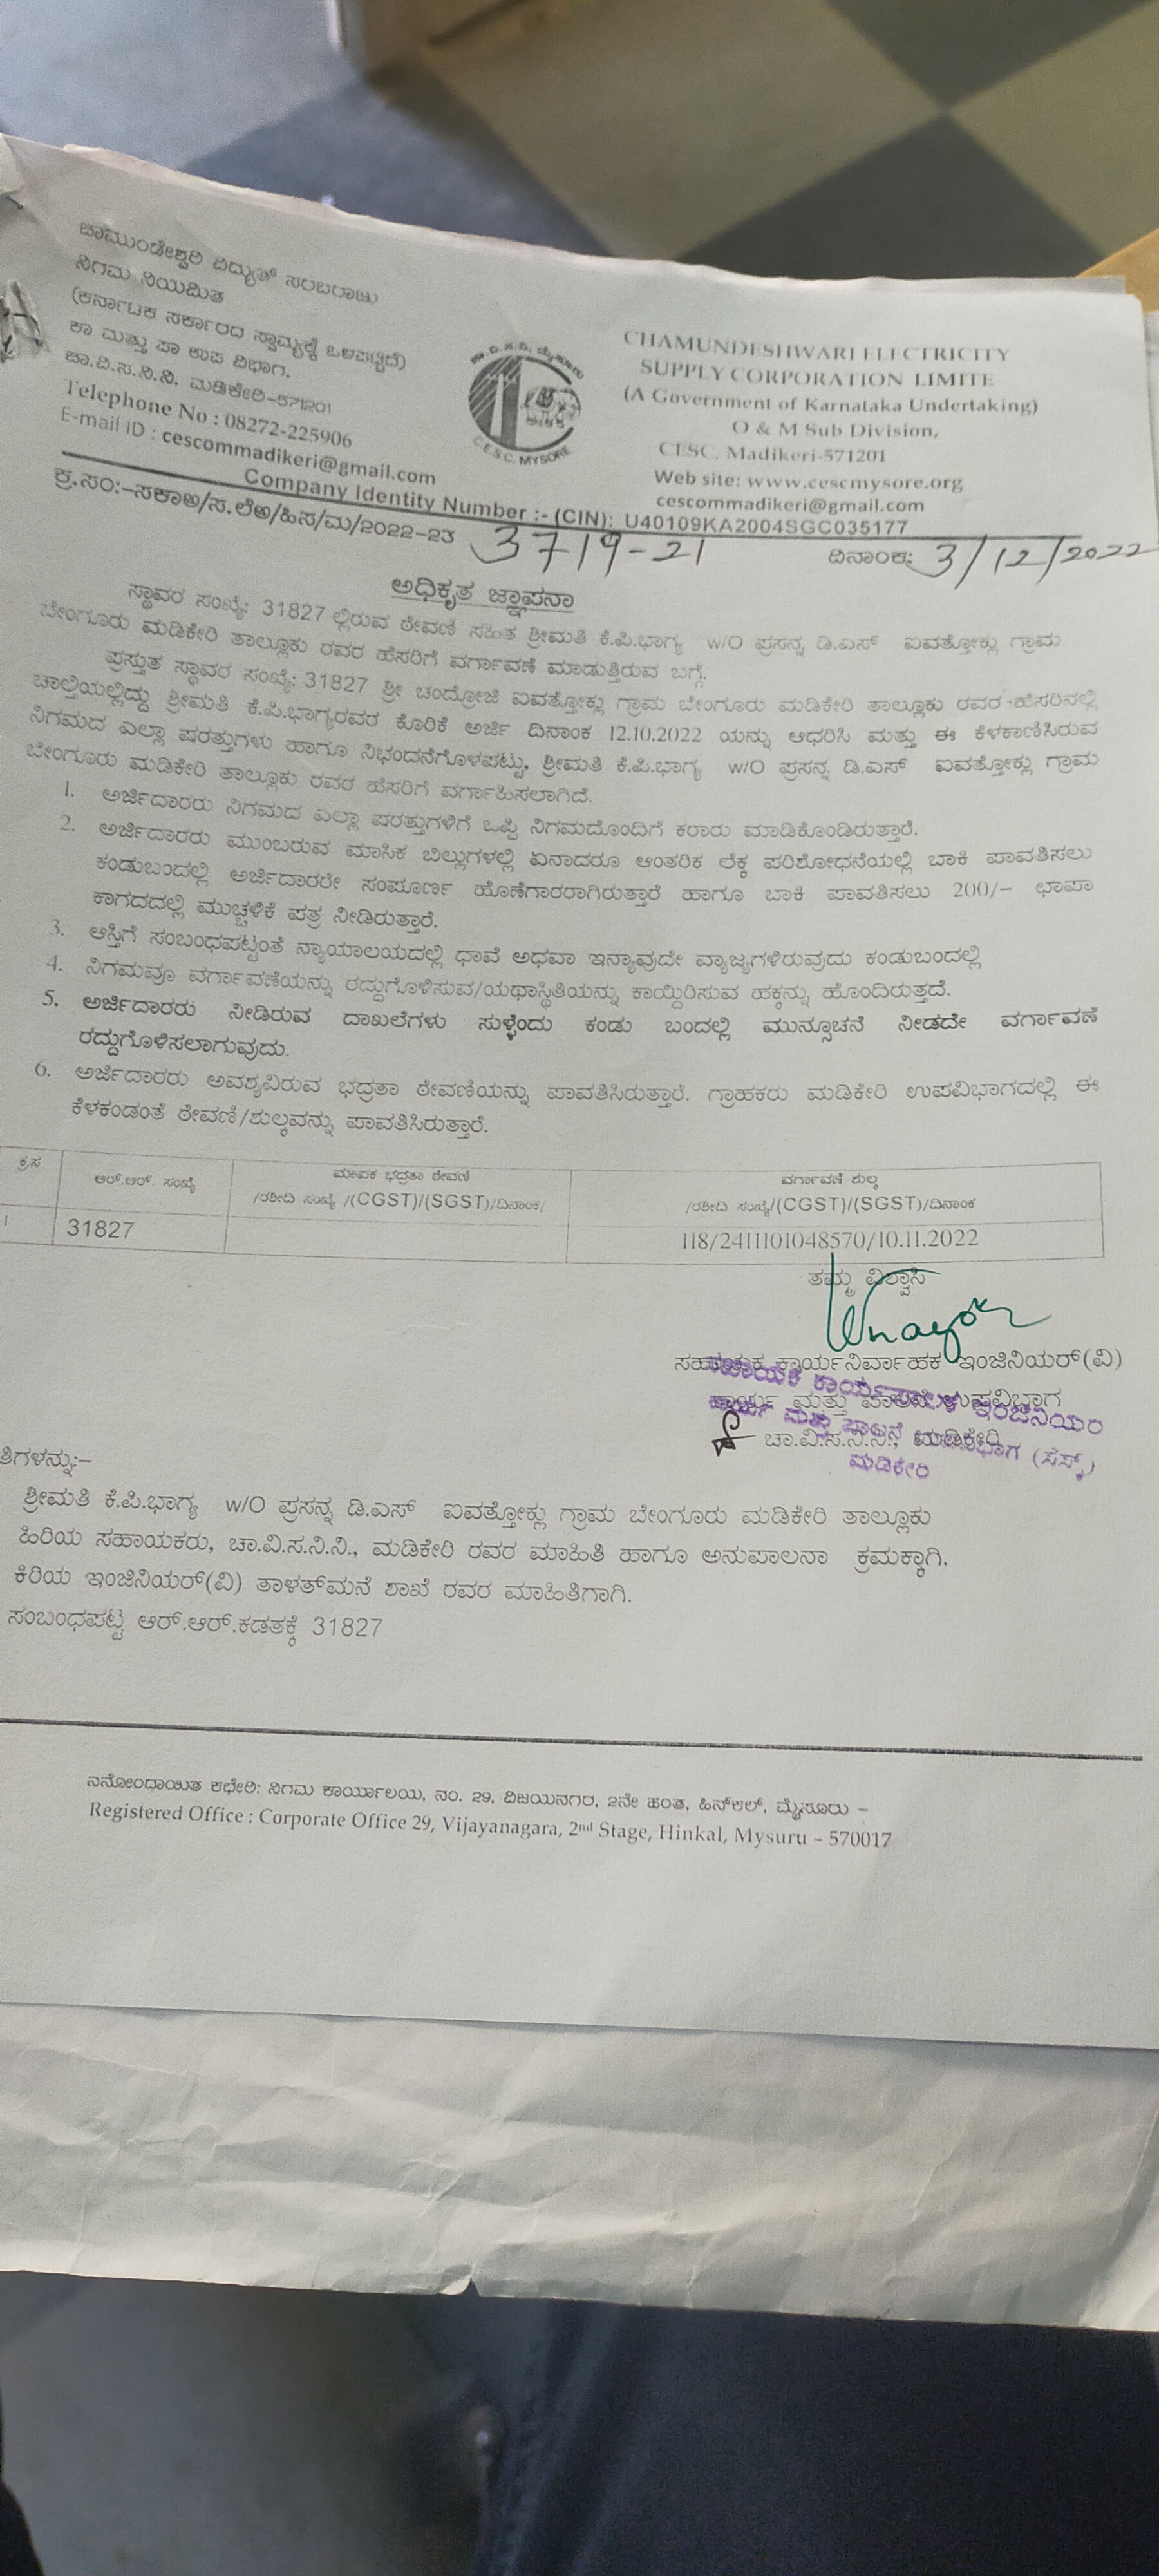 ಚಾಮುಂಡೇಶ್ವರಿ ವಿದ್ಯುತ್ ಸರಬರಾಜು
ನಿಗಮ ನಿಯಮಿತ
(ಕರ್ನಾಟಕ ಸರ್ಕಾರದ ಸ್ವಾಮ್ಯಕ್ಕೆ ಒಳಪಟ್ಟಿದೆ)
ಕಾ ಮತ್ತು ಪಾ ಉಪ ವಿಭಾಗ.
ಚಾ.ವಿ.ಸ.ನಿ.ನಿ. ಮಡಿಕೇರಿ-571201
Telephone No : 08272-225906
E-mail ID : cescommadikeri@gmail.com
C.E.S.C. MYSORE
CHAMUNDESHWARI ELECTRICITY
SUPPLY CORPORATION LIMITE
(A Government of Karnataka Undertaking)
O & M Sub Division,
CESC, Madikeri-571201
Web site: www.cescmysore.org
cescommadikeri@gmail.com
Company Identity Number :- (CIN): U40109KA2004SGC035177
ಕ್ರ.ಸಂ:-ಸಕಾಅ/ಸ.ಲೆಅ/ಹಿಸ/ಮ/2022-23 3719-21 ದಿನಾಂಕ: 3/12/2022
ಅಧಿಕೃತ ಜ್ಞಾಪನಾ
ಸ್ಥಾವರ ಸಂಖ್ಯೆ: 31827 ಲ್ಲಿರುವ ಠೇವಣಿ ಸಹಿತ ಶ್ರೀಮತಿ ಕೆ.ಪಿ.ಭಾಗ್ಯ w/O ಪ್ರಸನ್ನ ಡಿ.ಎಸ್ ಐವತ್ತೋಕ್ಲು ಗ್ರಾಮ
ಬೇಂಗೂರು ಮಡಿಕೇರಿ ತಾಲ್ಲೂಕು ರವರ ಹೆಸರಿಗೆ ವರ್ಗಾವಣೆ ಮಾಡುತ್ತಿರುವ ಬಗ್ಗೆ.
ಪ್ರಸ್ತುತ ಸ್ಥಾವರ ಸಂಖ್ಯೆ: 31827 ಶ್ರೀ ಚಂದ್ರೋಜಿ ಐವತ್ತೋಕ್ಲು ಗ್ರಾಮ ಬೇಂಗೂರು ಮಡಿಕೇರಿ ತಾಲ್ಲೂಕು ರವರ ಹೆಸರಿನಲ್ಲಿ
ಚಾಲ್ತಿಯಲ್ಲಿದ್ದು ಶ್ರೀಮತಿ ಕೆ.ಪಿ.ಭಾಗ್ಯರವರ ಕೊರಿಕೆ ಅರ್ಜಿ ದಿನಾಂಕ 12.10.2022 ಯನ್ನು ಆಧರಿಸಿ ಮತ್ತು ಈ ಕೆಳಕಾಣಿಸಿರುವ
ನಿಗಮದ ಎಲ್ಲಾ ಷರತ್ತುಗಳು ಹಾಗೂ ನಿಭಂದನೆಗೊಳಪಟ್ಟು. ಶ್ರೀಮತಿ ಕೆ.ಪಿ.ಭಾಗ್ಯ w/O ಪ್ರಸನ್ನ ಡಿ.ಎಸ್ ಐವತ್ತೋಕ್ಲು ಗ್ರಾಮ
ಬೇಂಗೂರು ಮಡಿಕೇರಿ ತಾಲ್ಲೂಕು ರವರ ಹೆಸರಿಗೆ ವರ್ಗಾಹಿಸಲಾಗಿದೆ.
1. ಅರ್ಜಿದಾರರು ನಿಗಮದ ಎಲ್ಲಾ ಷರತ್ತುಗಳಿಗೆ ಒಪ್ಪಿ ನಿಗಮದೊಂದಿಗೆ ಕರಾರು ಮಾಡಿಕೊಂಡಿರುತ್ತಾರೆ.
2. ಅರ್ಜಿದಾರರು ಮುಂಬರುವ ಮಾಸಿಕ ಬಿಲ್ಲುಗಳಲ್ಲಿ ಏನಾದರೂ ಆಂತರಿಕ ಲೆಕ್ಕ ಪರಿಶೋಧನೆಯಲ್ಲಿ ಬಾಕಿ ಪಾವತಿಸಲು
ಕಂಡುಬಂದಲ್ಲಿ ಅರ್ಜಿದಾರರೇ ಸಂಪೂರ್ಣ ಹೊಣೆಗಾರರಾಗಿರುತ್ತಾರೆ ಹಾಗೂ ಬಾಕಿ ಪಾವತಿಸಲು 200/- ಛಾಪಾ
ಕಾಗದದಲ್ಲಿ ಮುಚ್ಚಳಿಕೆ ಪತ್ರ ನೀಡಿರುತ್ತಾರೆ.
3. ಆಸ್ತಿಗೆ ಸಂಬಂಧಪಟ್ಟಂತೆ ನ್ಯಾಯಾಲಯದಲ್ಲಿ ಧಾವೆ ಅಥವಾ ಇನ್ಯಾವುದೇ ವ್ಯಾಜ್ಯಗಳಿರುವುದು ಕಂಡುಬಂದಲ್ಲಿ
4. ನಿಗಮವೂ ವರ್ಗಾವಣೆಯನ್ನು ರದ್ದುಗೊಳಿಸುವ/ಯಥಾಸ್ಥಿತಿಯನ್ನು ಕಾಯ್ದಿರಿಸುವ ಹಕ್ಕನ್ನು ಹೊಂದಿರುತ್ತದೆ.
5. ಅರ್ಜಿದಾರರು ನೀಡಿರುವ ದಾಖಲೆಗಳು ಸುಳ್ಳೆಂದು ಕಂಡು ಬಂದಲ್ಲಿ ಮುನ್ಸೂಚನೆ ನೀಡದೇ ವರ್ಗಾವಣೆ
ರದ್ದುಗೊಳಿಸಲಾಗುವುದು.
6. ಅರ್ಜಿದಾರರು ಅವಶ್ಯವಿರುವ ಭದ್ರತಾ ಠೇವಣಿಯನ್ನು ಪಾವತಿಸಿರುತ್ತಾರೆ. ಗ್ರಾಹಕರು ಮಡಿಕೇರಿ ಉಪವಿಭಾಗದಲ್ಲಿ ಈ
ಕೆಳಕಂಡಂತೆ ಠೇವಣಿ/ಶುಲ್ಕವನ್ನು ಪಾವತಿಸಿರುತ್ತಾರೆ.
ಕ್ರ.ಸ ಆರ್.ಆರ್. ಸಂಖ್ಯೆ ಮಾಪಕ ಭದ್ರತಾ ಠೇವಣಿ ವರ್ಗಾವಣೆ ಶುಲ್ಕ
/ರಶೀದಿ ಸಂಖ್ಯೆ /(CGST)/(SGST)/ದಿನಾಂಕ/ /ರಶೀದಿ ಸಂಖ್ಯೆ/(CGST)/(SGST)/ದಿನಾಂಕ
1 31827 118/2411101048570/10.11.2022
ತಮ್ಮ ವಿಶ್ವಾಸಿ
ಸಹಾಯಕ ಕಾರ್ಯನಿರ್ವಾಹಕ ಇಂಜಿನಿಯರ್(ವಿ)
ಕಾರ್ಯ ಮತ್ತು ಪಾಲನೆ ಉಪವಿಭಾಗ
ಚಾ.ವಿ.ಸ.ನಿ.ನಿ., ಮಡಿಕೇರಿ
ಮಡಿಕೇರಿ
ತಿಗಳನ್ನು:-
ಶ್ರೀಮತಿ ಕೆ.ಪಿ.ಭಾಗ್ಯ w/O ಪ್ರಸನ್ನ ಡಿ.ಎಸ್ ಐವತ್ತೋಕ್ಲು ಗ್ರಾಮ ಬೇಂಗೂರು ಮಡಿಕೇರಿ ತಾಲ್ಲೂಕು
ಹಿರಿಯ ಸಹಾಯಕರು, ಚಾ.ವಿ.ಸ.ನಿ.ನಿ., ಮಡಿಕೇರಿ ರವರ ಮಾಹಿತಿ ಹಾಗೂ ಅನುಪಾಲನಾ ಕ್ರಮಕ್ಕಾಗಿ.
ಕಿರಿಯ ಇಂಜಿನಿಯರ್(ವಿ) ತಾಳತ್‌ಮನೆ ಶಾಖೆ ರವರ ಮಾಹಿತಿಗಾಗಿ.
ಸಂಬಂಧಪಟ್ಟ ಆರ್.ಆರ್.ಕಡತಕ್ಕೆ 31827
ನನೋಂದಾಯಿತ ಕಛೇರಿ: ನಿಗಮ ಕಾರ್ಯಾಲಯ, ನಂ. 29, ವಿಜಯನಗರ, 2ನೇ ಹಂತ, ಹಿನ್‌ಕಲ್, ಮೈಸೂರು –
Registered Office : Corporate Office 29, Vijayanagara, 2nd Stage, Hinkal, Mysuru – 570017